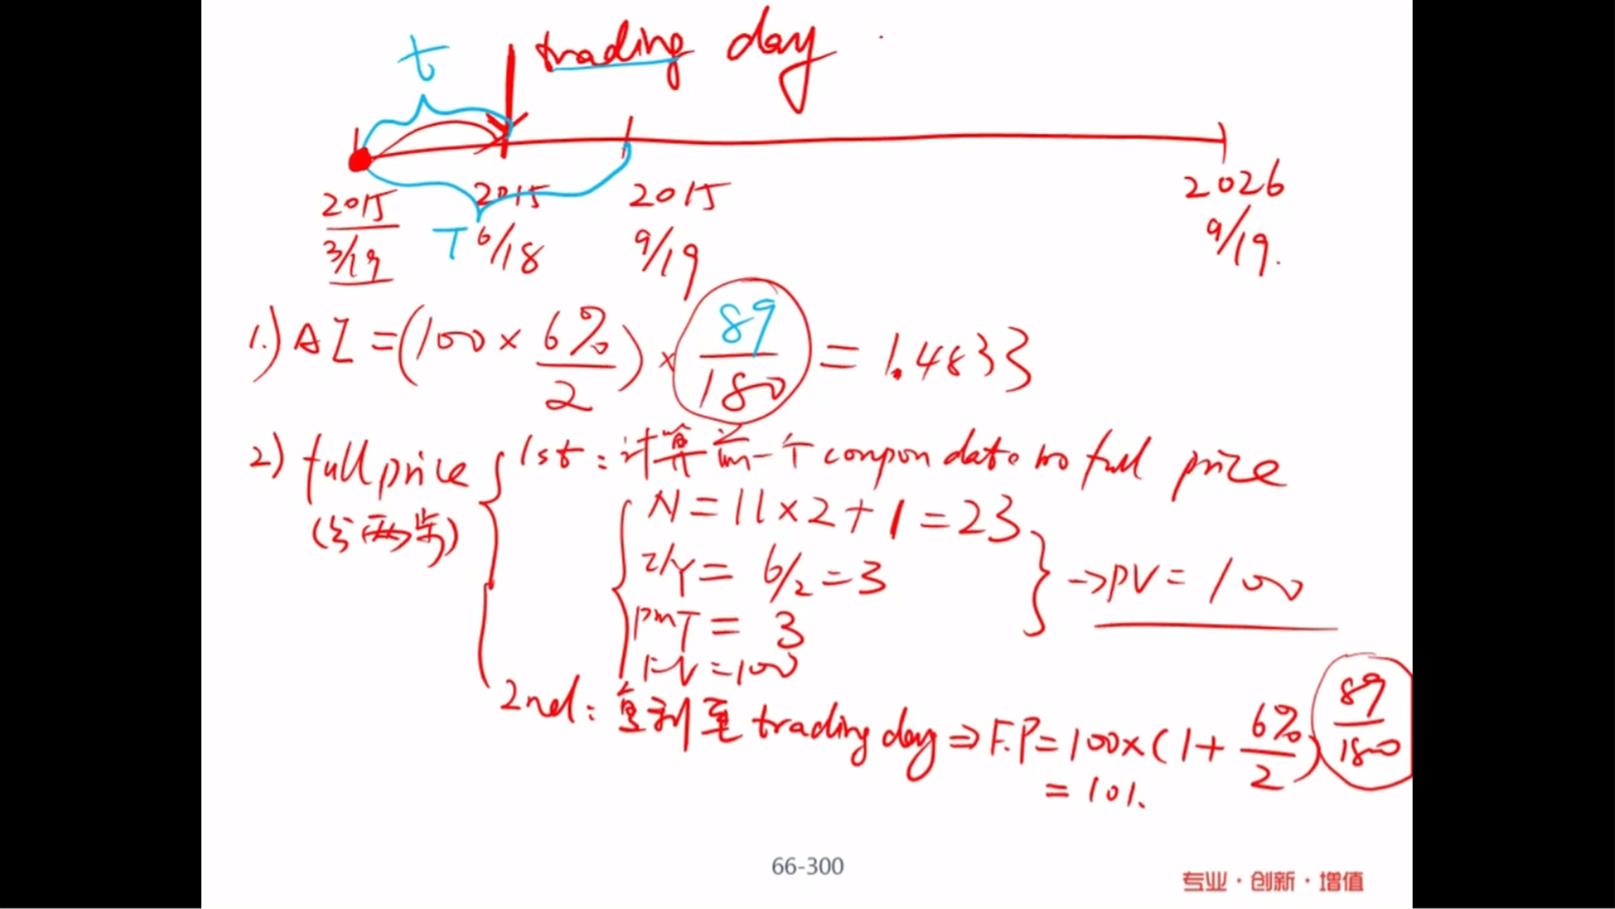 t trading day
2015 2015 2015 2026
3/19 T 6/18 9/19 9/19.
1.) AI = (100 × 6%/2) × 89/180 = 1.4833
2) full price { 1st: 计算前一个 coupon date 的 full price
(分两步) N = 11×2+1 = 23
I/Y = 6/2 = 3 } → PV = 100
PMT = 3
FV = 100
2nd: 复利至 trading day ⇒ F.P = 100×(1+6%/2) 89/180
= 101.
66-300
专业·创新·增值